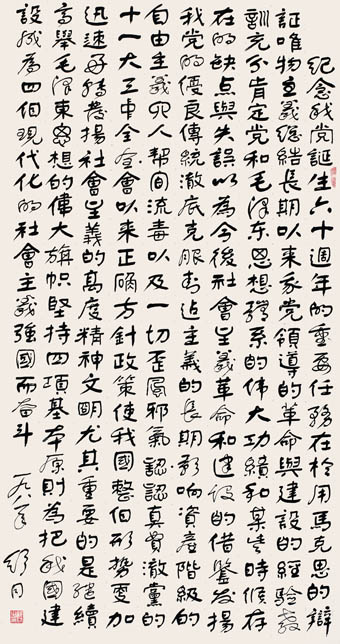 纪念我党诞生六十週年的重要任務在於用馬克思的辯
証唯物主義總結長期以來我党領導的革命與建設的經驗教
訓充分肯定党和毛泽东思想體系的伟大功績和某些時候存
在的缺点與失誤以為今後社會主義革命和建設的借鉴發揚
我党的優良傳統澈底克服封建主義的長期影响資產階級的
自由主義四人帮的流毒以及一切歪風邪氣認真貫澈党的
十一大三中全會以來正确方針政策使我國整個形势更加
迅速好轉發揚社會主義的高度精神文明尤其重要的是繼續
高舉毛泽東思想的偉大旗帜堅持四項基本原則為把我國建
設成為四個現代化的社會主義強國而奋斗
一九八一年 舒同